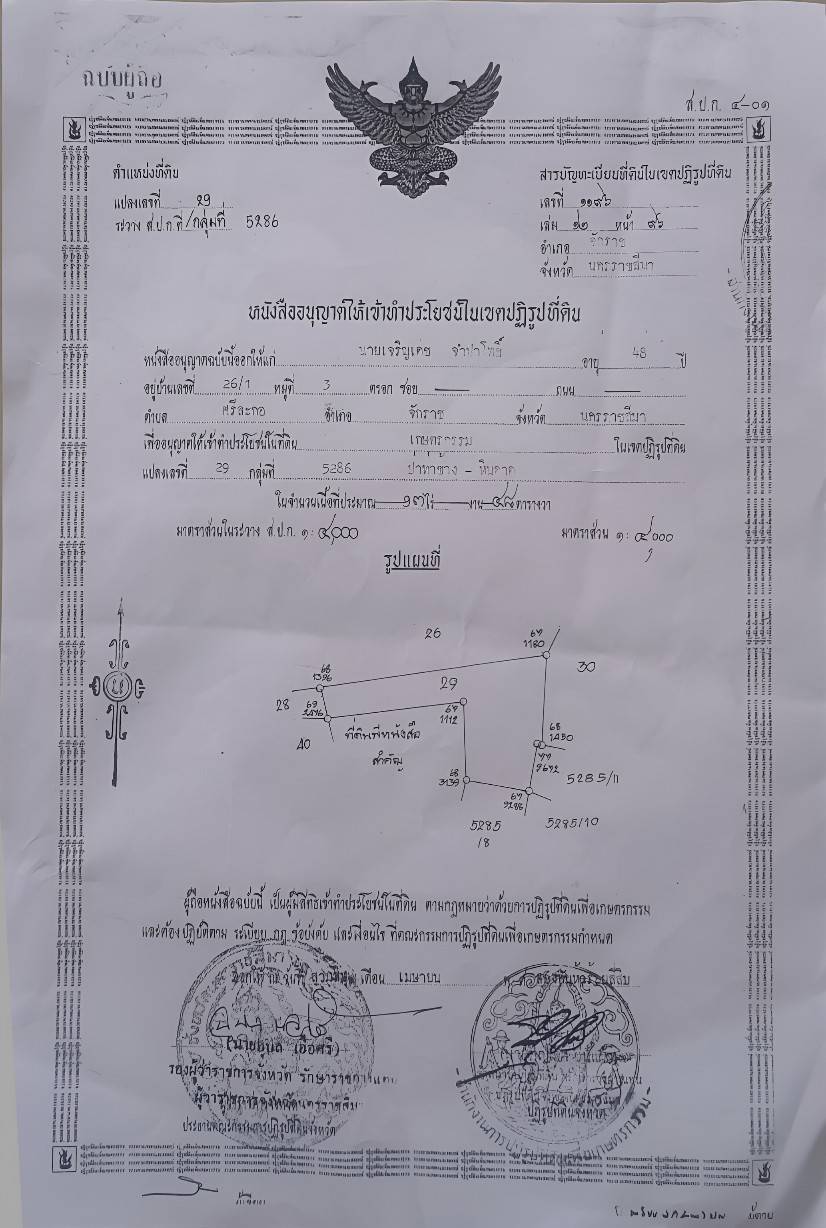 ฉบับผู้ถือ
ส.ป.ก. ๔-๐๑
ตำแหน่งที่ดิน
แปลงเลขที่ 29
ระวาง ส.ป.ก.ที่/กลุ่มที่ 5286
สารบัญทะเบียนที่ดินในเขตปฏิรูปที่ดิน
เลขที่ ๑๑๙๖
เล่ม ๑๒ หน้า ๙๖
อำเภอ จักราช
จังหวัด นครราชสีมา
หนังสืออนุญาตให้เข้าทำประโยชน์ในเขตปฏิรูปที่ดิน
หนังสืออนุญาตฉบับนี้ออกให้แก่ นายเจริญเดช จำปาโพธิ์ อายุ 48 ปี
อยู่บ้านเลขที่ 26/1 หมู่ที่ 3 ตรอก ซอย — ถนน —
ตำบล ศรีละกอ อำเภอ จักราช จังหวัด นครราชสีมา
เพื่ออนุญาตให้เข้าทำประโยชน์ในที่ดิน เกษตรกรรม ในเขตปฏิรูปที่ดิน
แปลงเลขที่ 29 กลุ่มที่ 5286 ป่าท่าช้าง - หินดาด
ในจำนวนเนื้อที่ประมาณ ๑๗ ไร่ — งาน ๔๘ ตารางวา
มาตราส่วนในระวาง ส.ป.ก. ๑:๔,๐๐๐
มาตราส่วน ๑:๔,๐๐๐
รูปแผนที่
26
67
1180
30
68
1396
29
28
69
67
1112
40
ที่ดินมีหนังสือ
สำคัญ
68
1430
68
3139
67
5285/11
5285
/8
5285/10
น
ผู้ถือหนังสือฉบับนี้ เป็นผู้มีสิทธิเข้าทำประโยชน์ในที่ดิน ตามกฎหมายว่าด้วยการปฏิรูปที่ดินเพื่อเกษตรกรรม
และต้องปฏิบัติตาม ระเบียบ กฎ ข้อบังคับ และเงื่อนไข ที่คณะกรรมการปฏิรูปที่ดินเพื่อเกษตรกรรมกำหนด
ออกให้ ณ วันที่ เดือน เมษายน
รองผู้ว่าราชการจังหวัด รักษาราชการแทน
ผู้ว่าราชการจังหวัดนครราชสีมา
ประธานคณะกรรมการปฏิรูปที่ดินจังหวัด
ปฏิรูปที่ดินจังหวัด